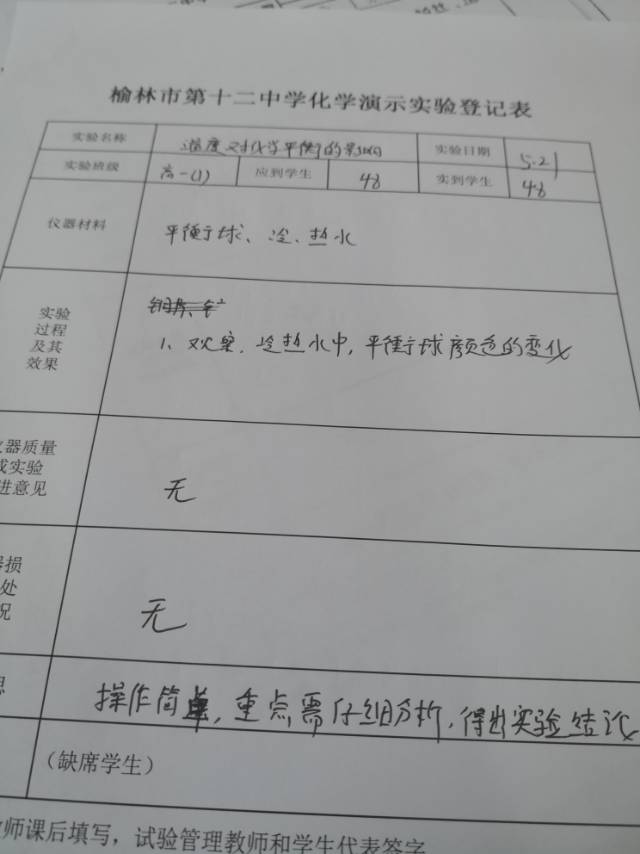 榆林市第十二中学化学演示实验登记表
实验名称 温度对化学平衡的影响 实验日期 5.21
实验班级 高一(1) 应到学生 48 实到学生 48
仪器材料 平衡球、冷、热水
实验
过程
及其
效果
1、观察,冷热水中,平衡球颜色的变化
仪器质量
或实验
进意见
无
器损
处
况
无
思
操作简单,重点需仔细分析,得出实验结论
(缺席学生)
教师课后填写,试验管理教师和学生代表签字